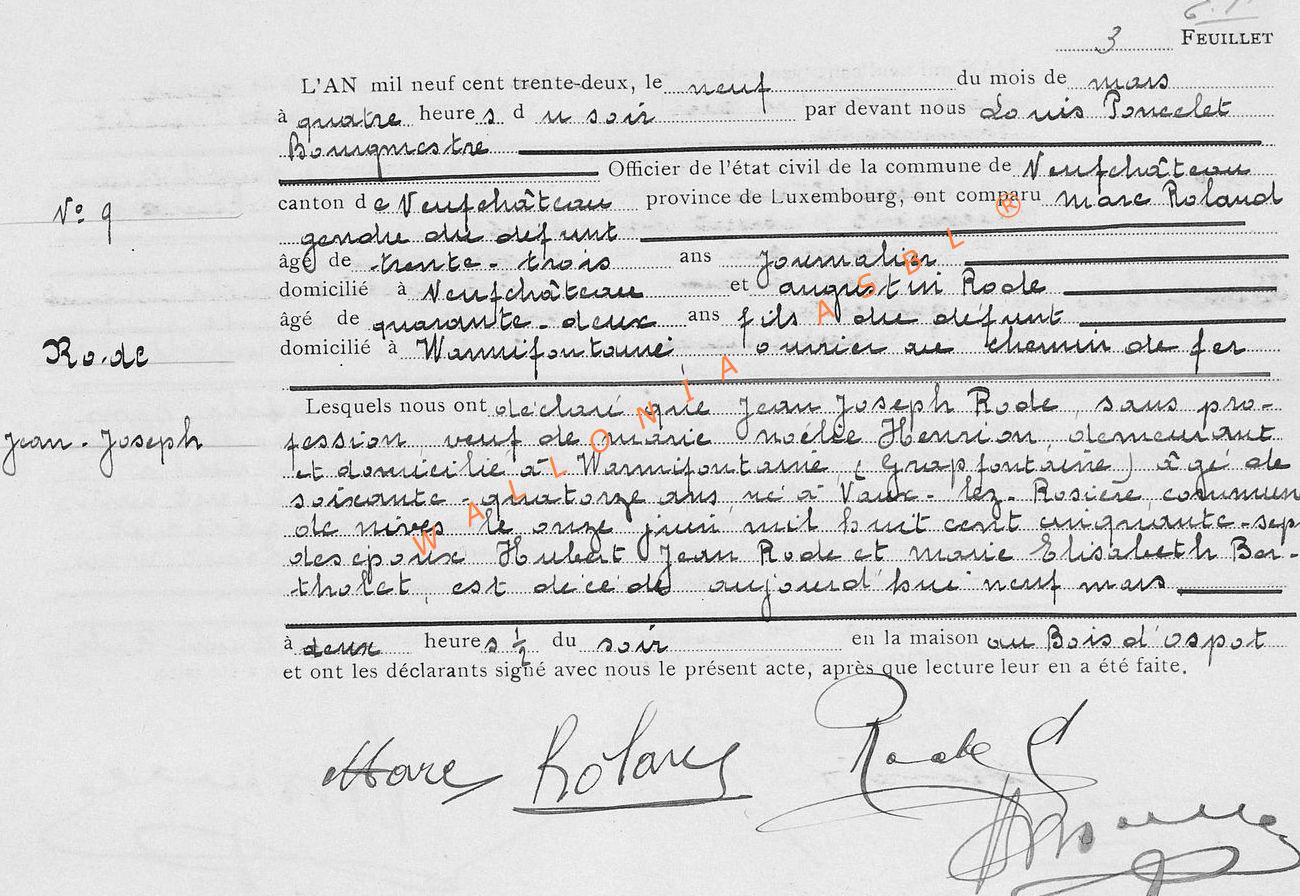 3 FEUILLET
L'AN mil neuf cent trente-deux, le neuf du mois de mars
à quatre heures du soir par devant nous Louis Poncelet
Bourgmestre
Officier de l'état civil de la commune de Neufchâteau
N° 9
canton de Neufchâteau province de Luxembourg, ont comparu Marc Roland
gendre du défunt
âgé de trente-trois ans journalier
domicilié à Neufchâteau et augustin Rode
âgé de quarante-deux ans fils du défunt
Rode
domicilié à Warmifontaine ouvrier au chemin de fer
Jean-Joseph
Lesquels nous ont déclaré que Jean Joseph Rode, sans pro-
fession, veuf de marie noélie Henrion, demeurant
et domicilié à Warmifontaine (Grapfontaine) âgé de
soixante-quatorze ans né à Vaux-lez-Rosière commune
de nives le onze juin mil huit cent cinquante-sep
des époux Hubert Jean Rode et marie Elisabeth Ber-
tholet, est décédé aujourd'hui neuf mars
à deux heures ½ du soir en la maison au Bois d'Ospot
et ont les déclarants signé avec nous le présent acte, après que lecture leur en a été faite.
Marc Roland Rode
WALLONIA ASBL ®